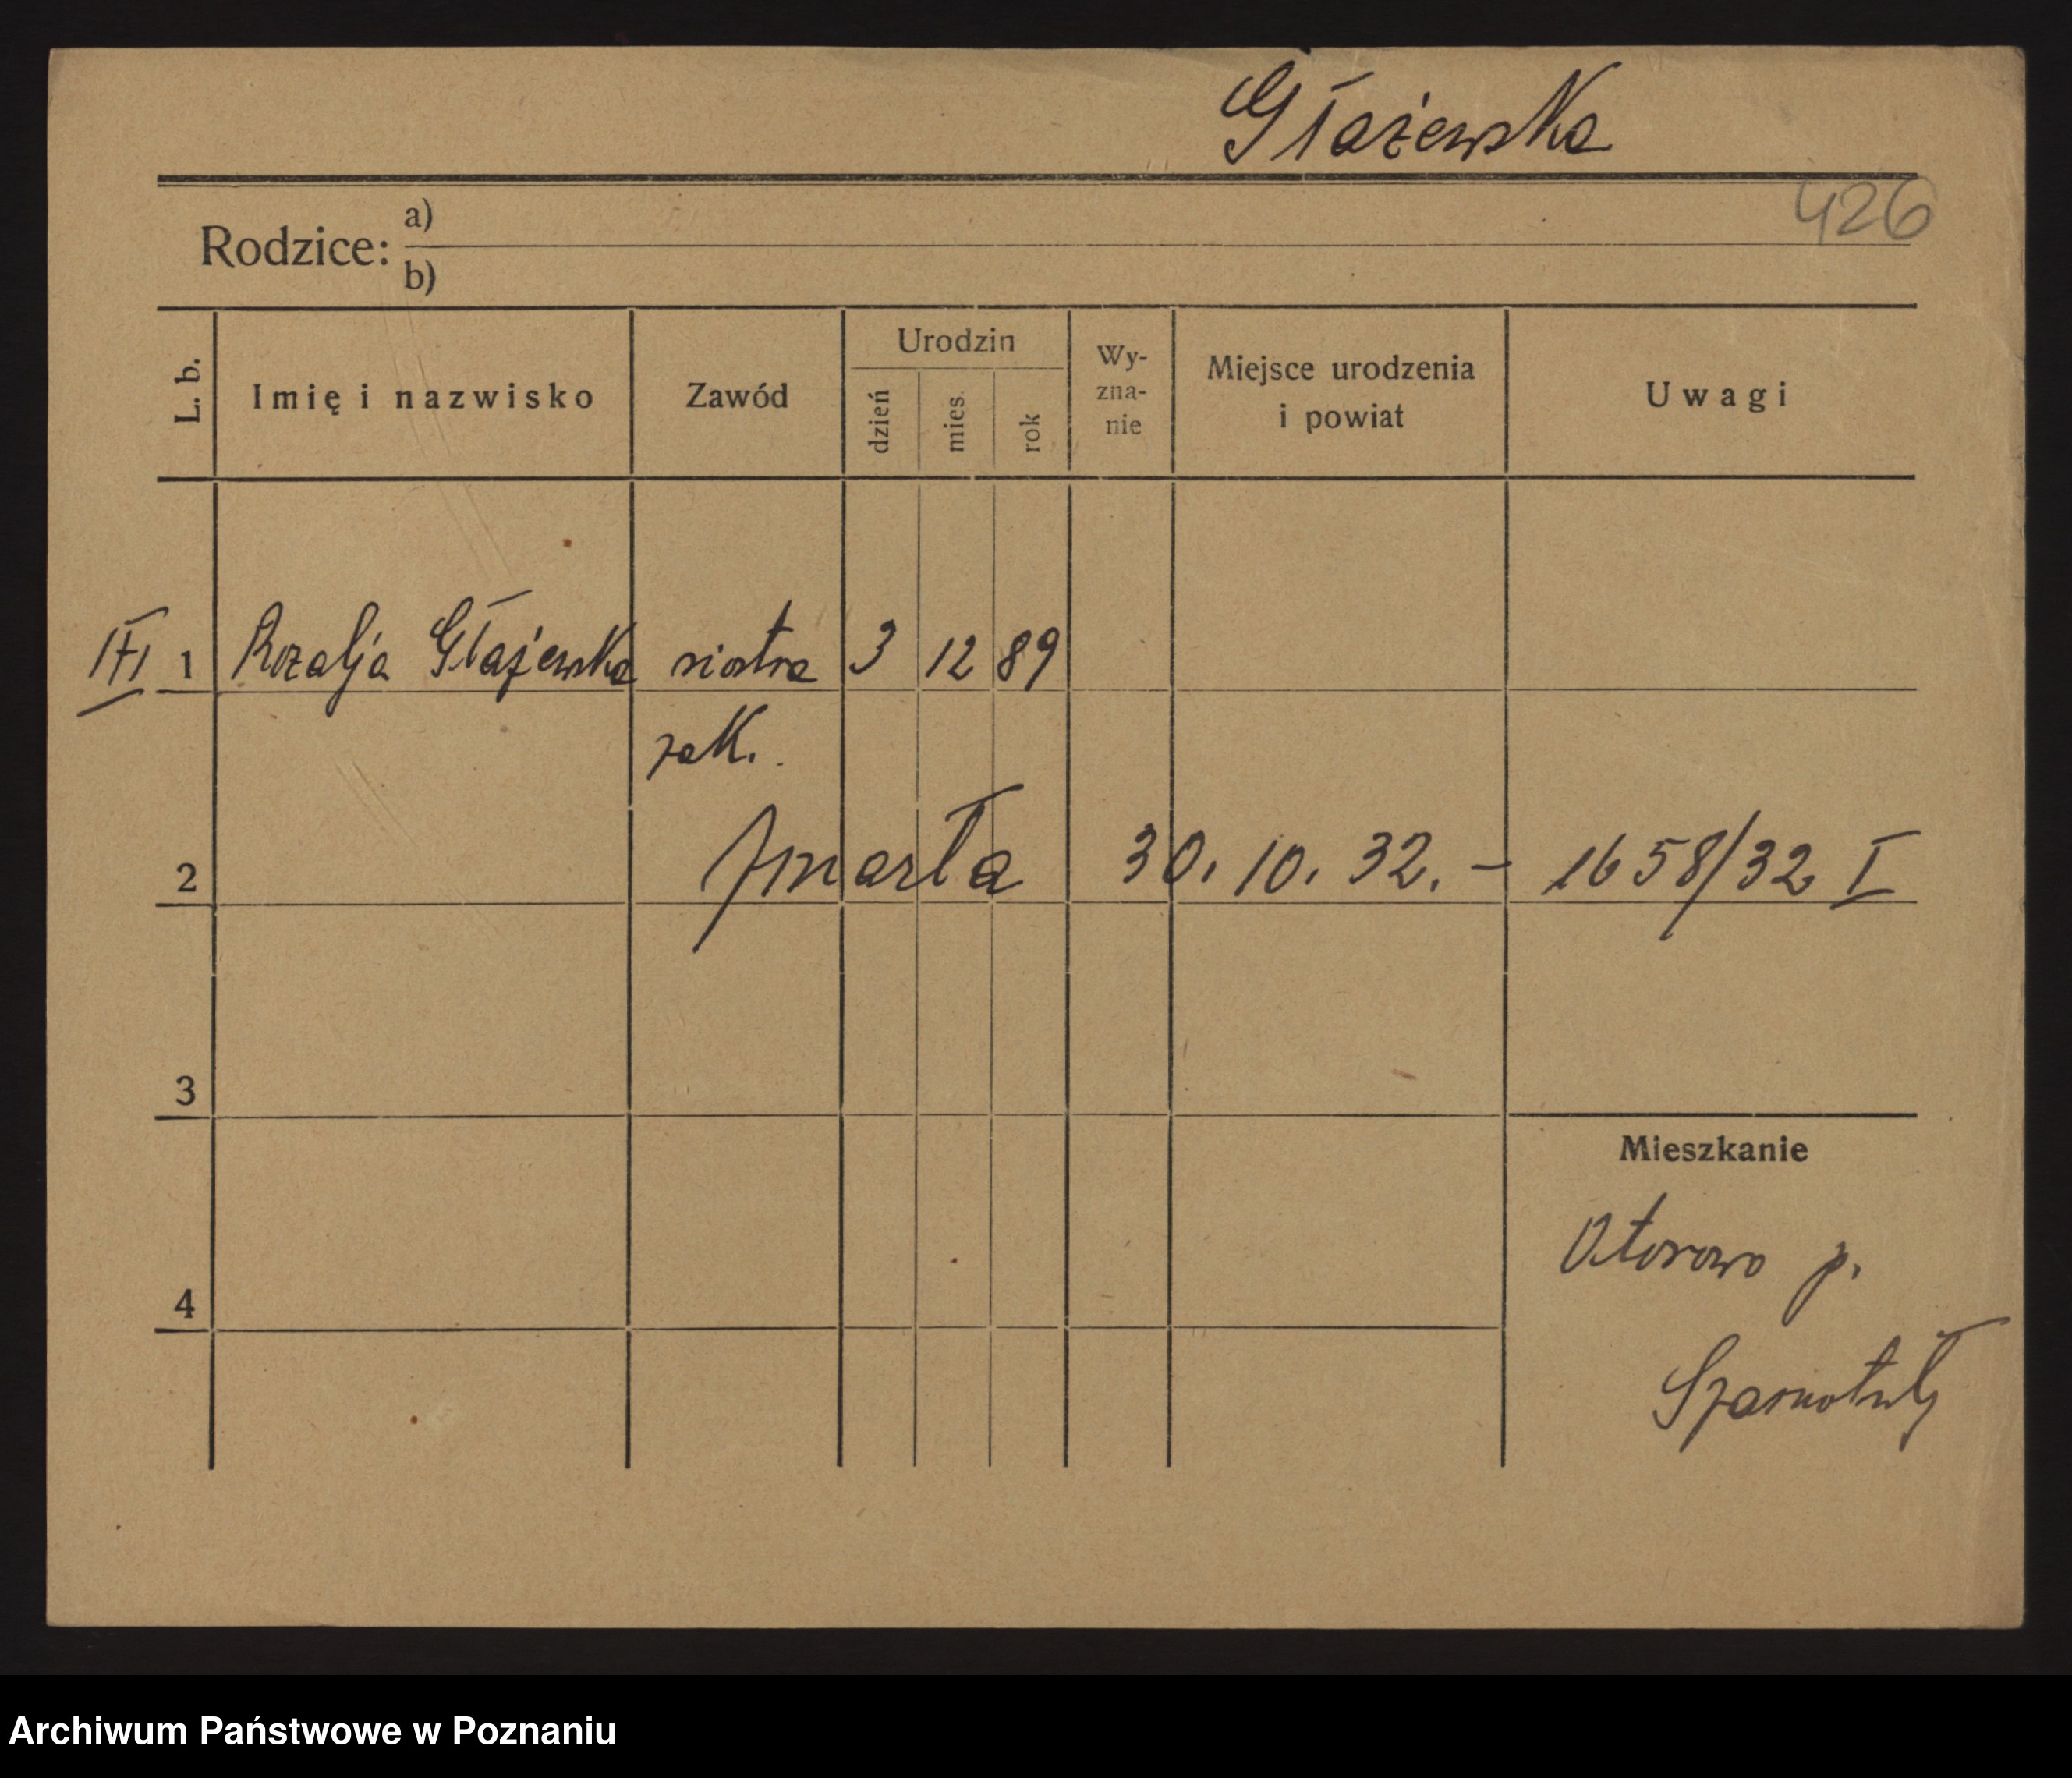 Głażewska
426
Rodzice: a)
b)
L. b. Imię i nazwisko Zawód Urodzin dzień mies. rok Wy-zna-nie Miejsce urodzenia i powiat Uwagi
1 Rozalja Głażewska siostra 3 12 89
zak.
2 Zmarła 30. 10. 32. - 1658/32 I
3
Mieszkanie
Otorowo p.
4
Szamotuły
Archiwum Państwowe w Poznaniu